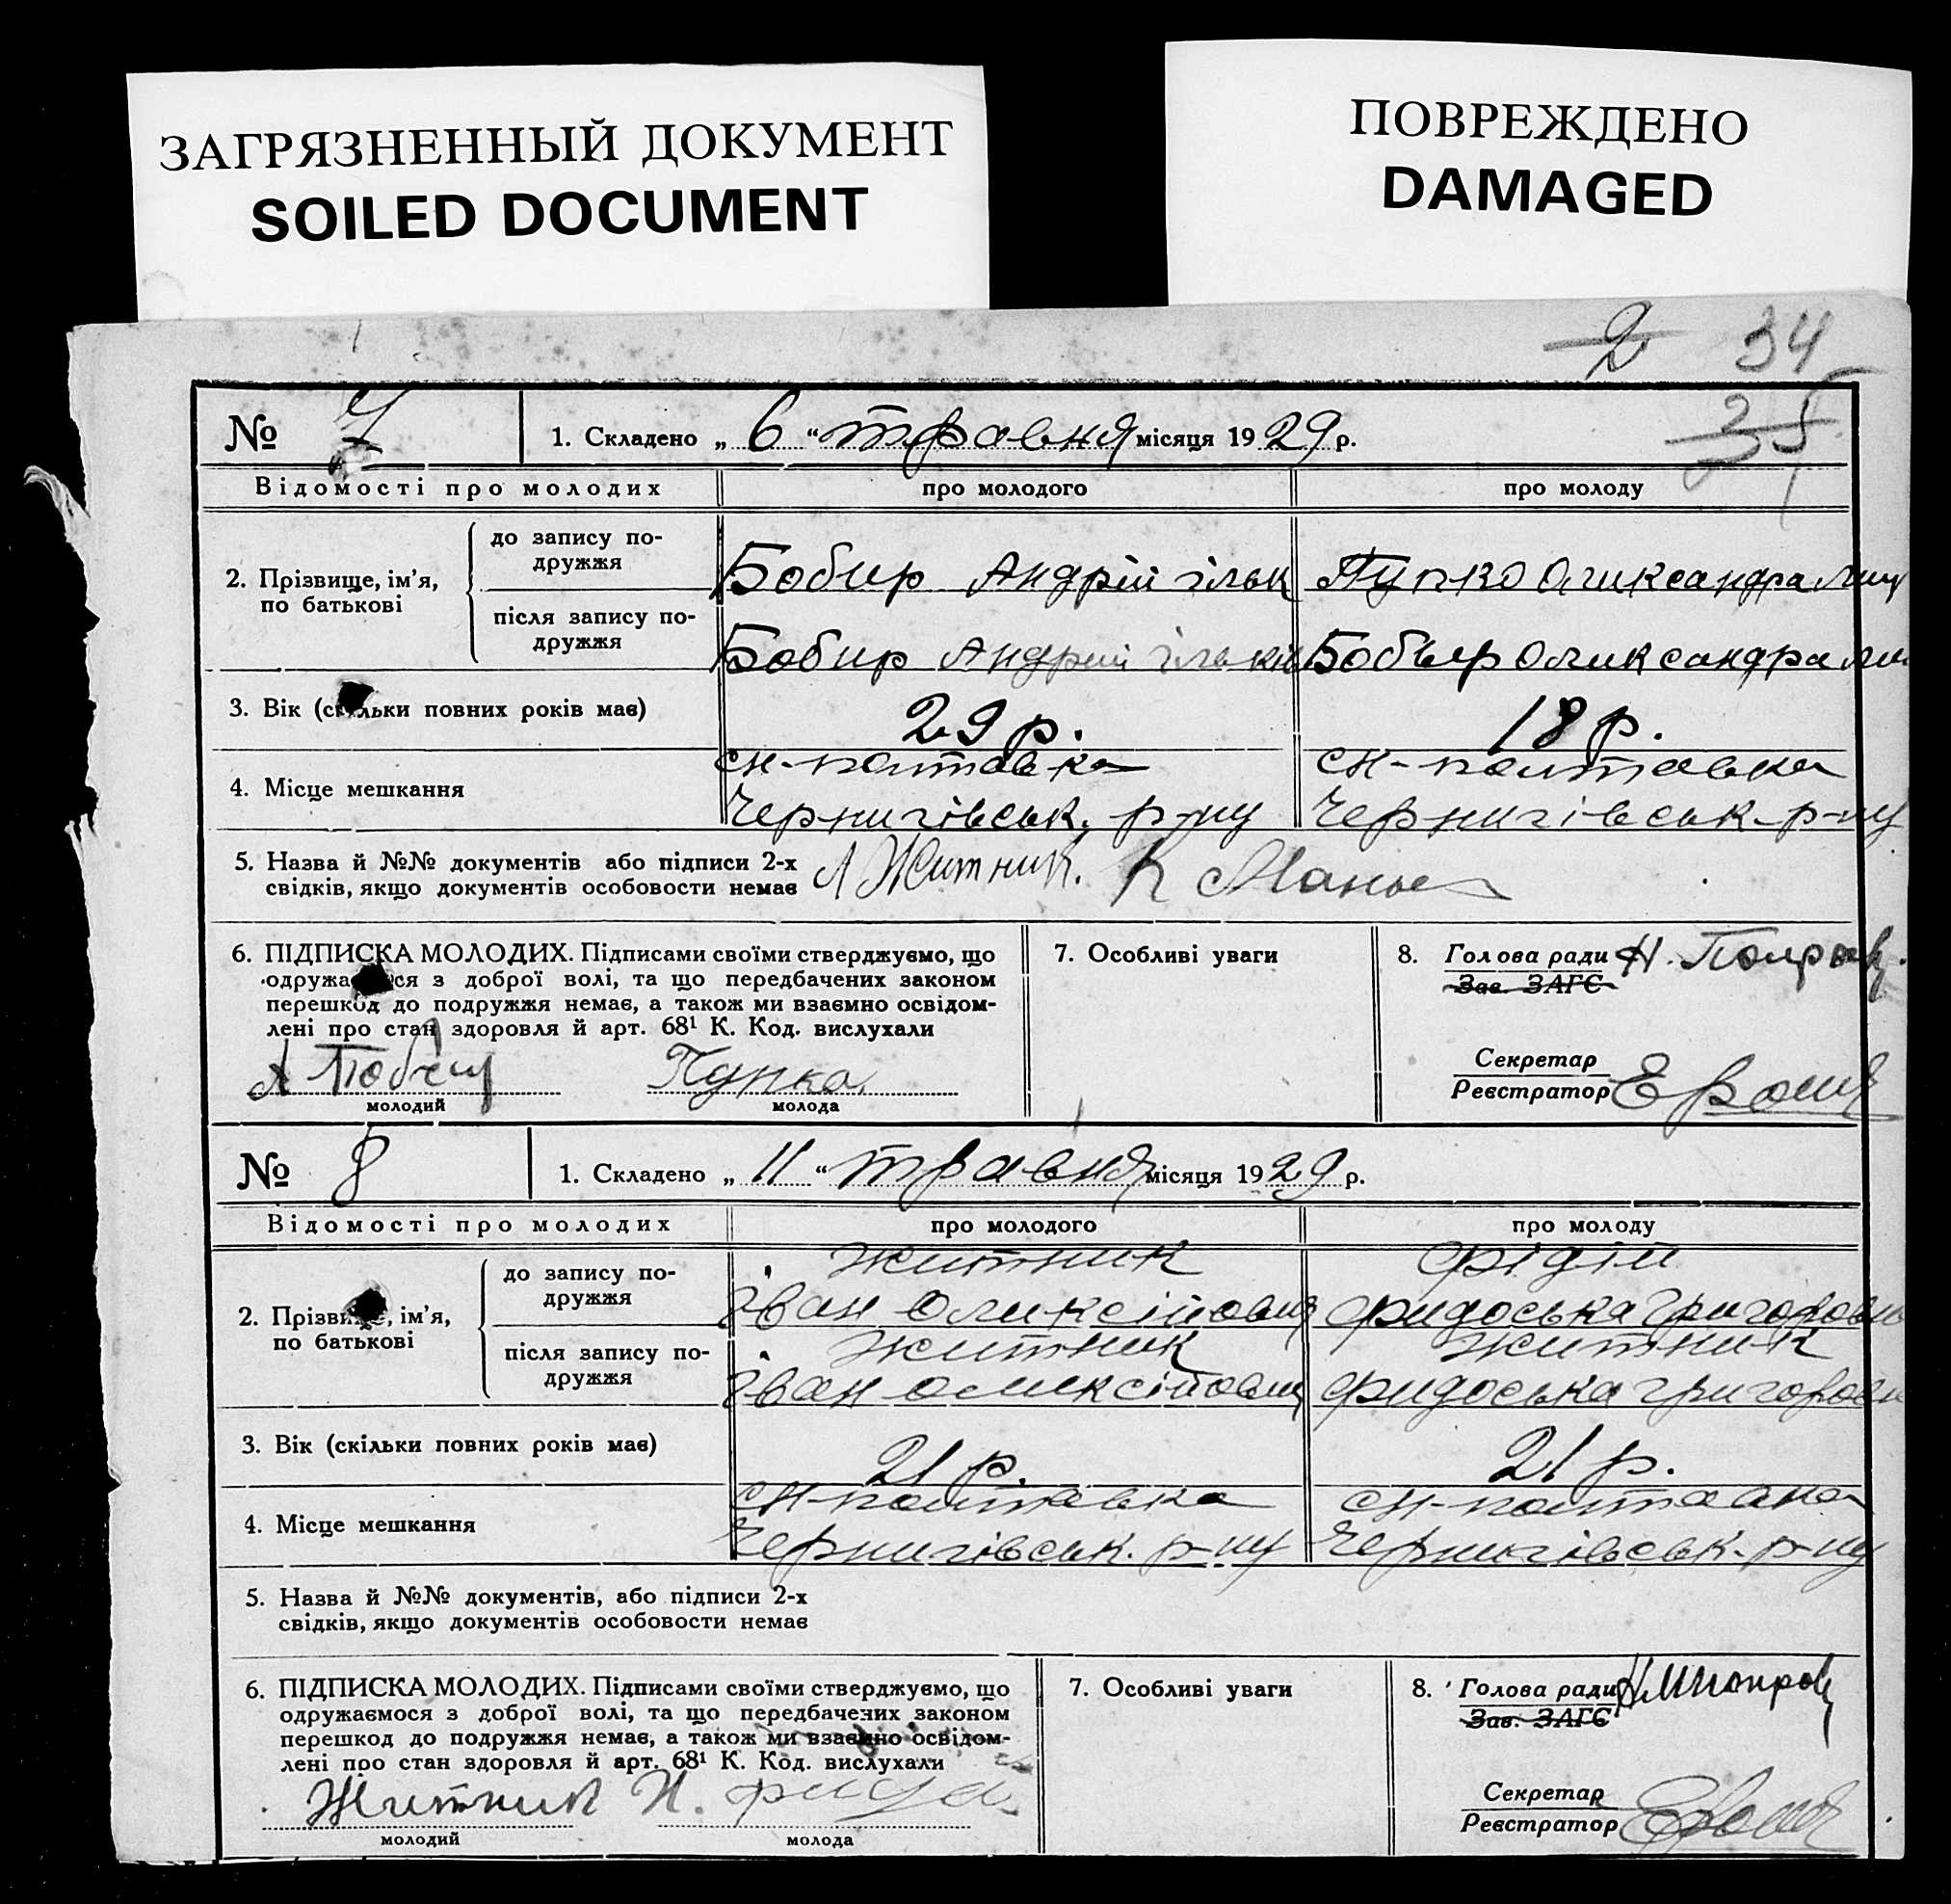 ЗАГРЯЗНЕННЫЙ ДОКУМЕНТ
SOILED DOCUMENT
ПОВРЕЖДЕНО
DAMAGED
2 34
35
№ 7 1. Складено „ 6 “ травня місяця 1929 р.
Відомості про молодих про молодого про молоду
2. Прізвище, ім’я, по батькові
до запису подружжя
Бобир Андрій ільк
Пупко Оликсандра
після запису подружжя
Бобир Андрій ільки
Бобыр Оликсандра
3. Вік (скільки повних років має) 29 р. 18 р.
4. Місце мешкання
сн-полтавка
Чернигівськ. р-ну
сн-полтавка
Чернигівськ-р-ну
5. Назва й №№ документів або підписи 2-х
свідків, якщо документів особовости немає
Житник. К
6. ПІДПИСКА МОЛОДИХ. Підписами своїми стверджуємо, що
одружаємося з доброї волі, та що передбачених законом
перешкод до подружжя немає, а також ми взаємно освідом-
лені про стан здоровля й арт. 68¹ К. Код. вислухали
Пупко
молодий молода
7. Особливі уваги
8. Голова ради Н.
Зав. ЗАГС
Секретар
Реєстратор
№ 8 1. Складено „ 11 “ травня місяця 1929 р.
Відомості про молодих про молодого про молоду
2. Прізвище, ім’я, по батькові
до запису подружжя
Житник
іван Оликсійович
Фідій
Фидоська Григоровн
після запису подружжя
Житник
іван Оликсійович
Житник
Фидоська Григоровн
3. Вік (скільки повних років має) 21 р. 21 р.
4. Місце мешкання
сн-полтавка
Чернигівськ. р-ну
сн-полтавка
Чернигівськ-р-ну
5. Назва й №№ документів, або підписи 2-х
свідків, якщо документів особовости немає
6. ПІДПИСКА МОЛОДИХ. Підписами своїми стверджуємо, що
одружаємося з доброї волі, та що передбачених законом
перешкод до подружжя немає, а також ми взаємно освідом-
лені про стан здоровля й арт. 68¹ К. Код. вислухали
Житник И.
молодий молода
7. Особливі уваги
8. Голова ради
Зав. ЗАГС
Секретар
Реєстратор